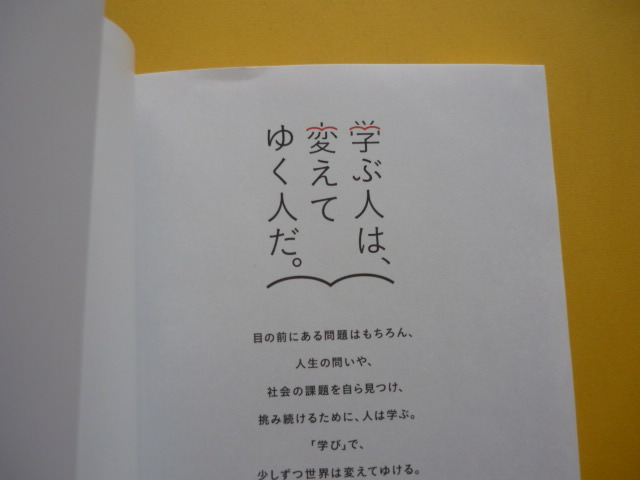 学ぶ人は、
変えて
ゆく人だ。
目の前にある問題はもちろん、
人生の問いや、
社会の課題を自ら見つけ、
挑み続けるために、人は学ぶ。
「学び」で、
少しずつ世界は変えてゆける。